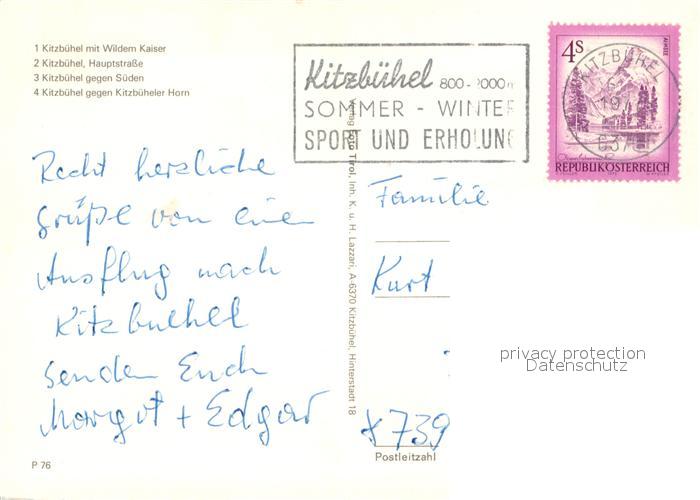 1 Kitzbühel mit Wildem Kaiser
2 Kitzbühel, Hauptstraße
3 Kitzbühel gegen Süden
4 Kitzbühel gegen Kitzbüheler Horn
Kitzbühel 800-2000m
SOMMER - WINTER
SPORT UND ERHOLUNG
4S
AHRNSEE
KITZBÜHEL
REPUBLIK ÖSTERREICH
Recht herzliche
Grüße von einem
Ausflug nach
Kitzbuehel
senden Euch
Margot + Edgar
Verlag Foto Tirol, Inh. K. u. H. Lazzari, A-6370 Kitzbühel, Hinterstadt 18
Familie
Kurt
privacy protection
Datenschutz
739
Postleitzahl
P 76